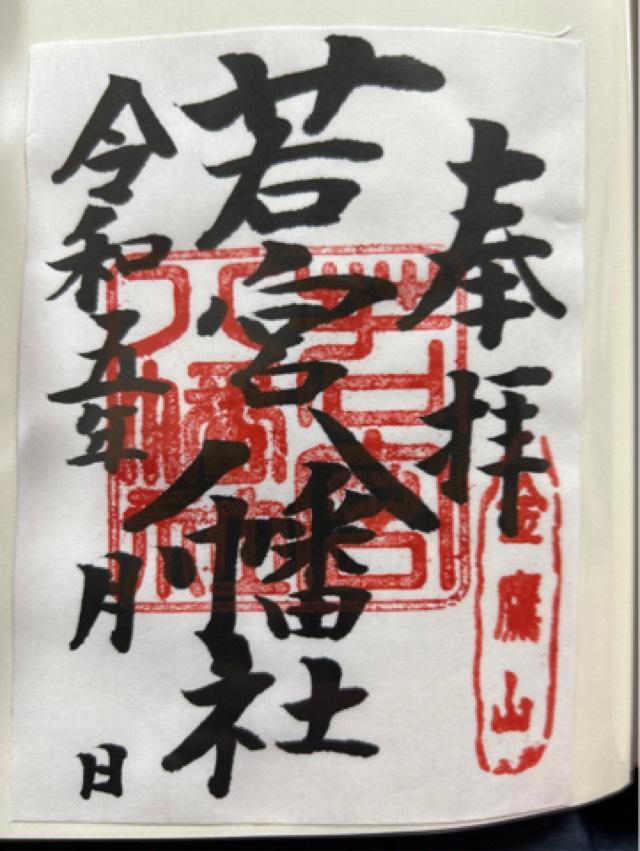 奉拝
金鷹山
若宮八幡社
若宮八幡社
令和五年 月 日